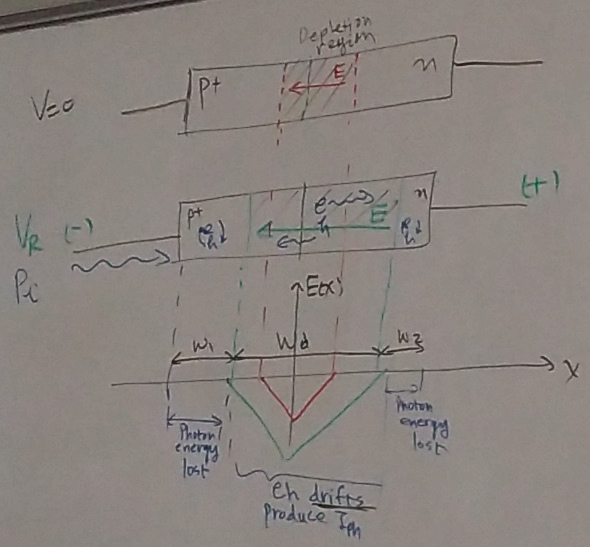 Depletion
region
V=0
p+
E
n
VR (-)
p+
e
h
e
h
E
n
e
h
(+)
Pi
E(x)
W1
Wd
W2
x
Photon
energy
lost
Photon
energy
lost
eh drifts
produce Iph